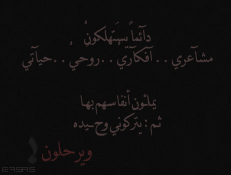 دآئماً سيَستهلكونْ
مشآعري . . آفكآرّي . . روحي . . حيآتي
يملئون أنفاسهم بها
ثم : يتركوني وحـيده
ويرحلون !